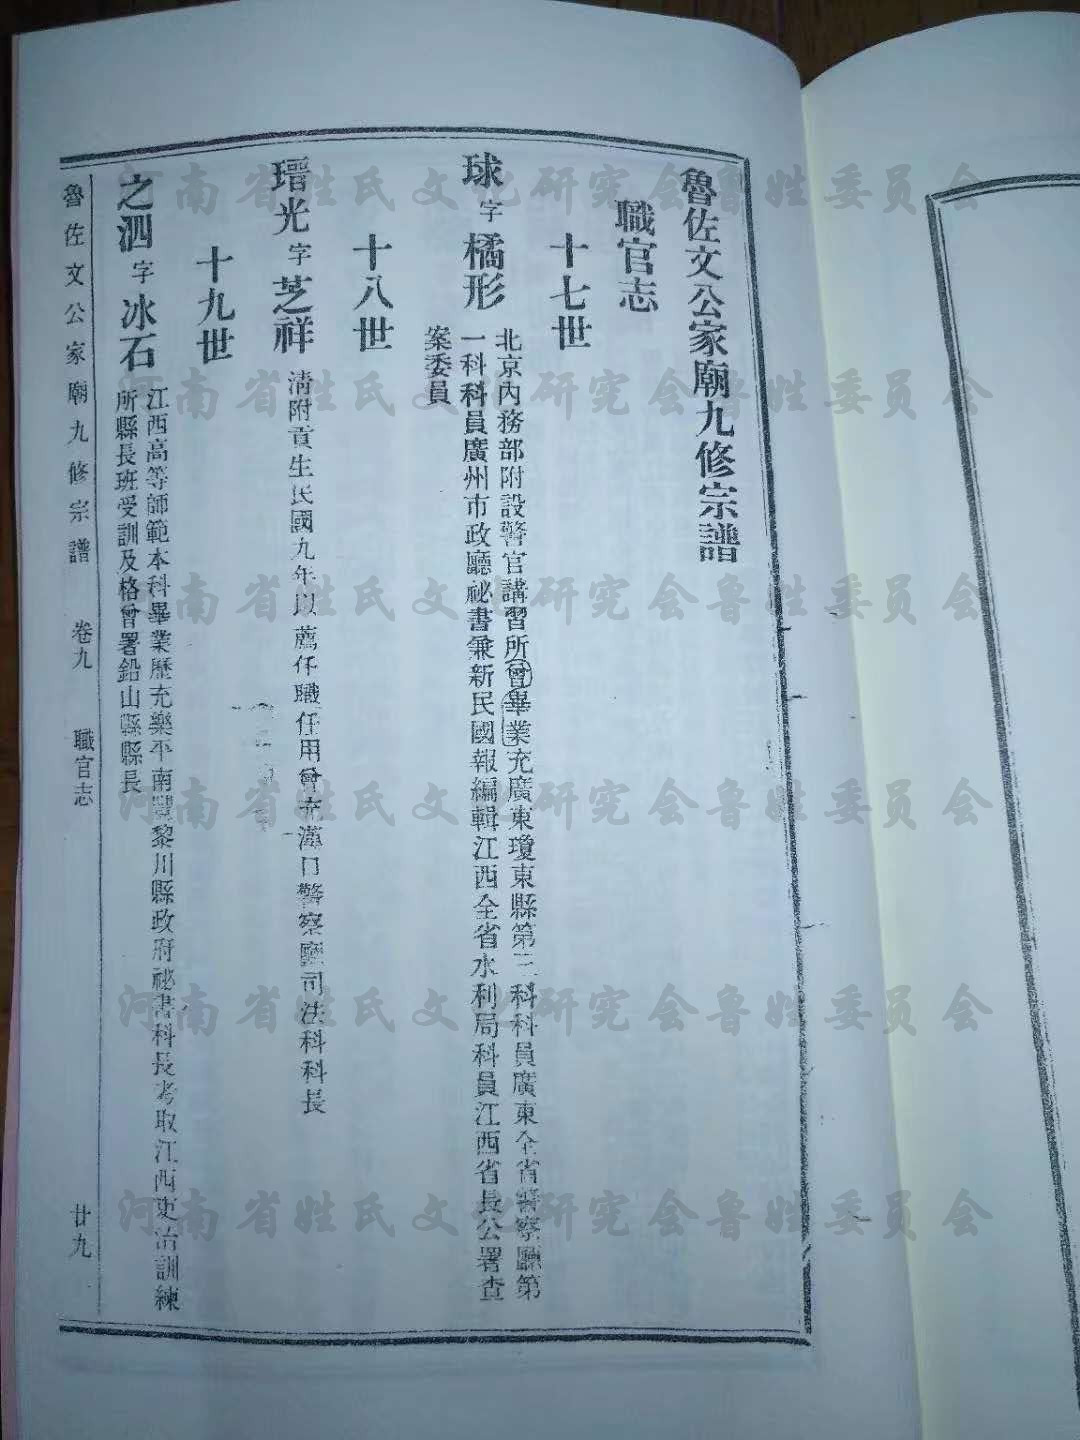 魯佐文公家廟九修宗譜
職官志
十七世
球字橘形
北京內務部附設警官講習所曾畢業充廣東瓊東縣第三科科員廣東全省警察廳第
一科科員廣州市政廳祕書兼新民國報編輯江西全省水利局科員江西省長公署查
案委員
十八世
瑨光字芝祥
清附貢生民國九年以薦任職任用曾充漢口警察廳司法科科長
十九世
之泗字冰石
江西高等師範本科畢業歷充樂平南豐黎川縣政府祕書科長考取江西吏治訓練
所縣長班受訓及格曾署鉛山縣縣長
魯佐文公家廟九修宗譜 卷九 職官志 廿九
河南省姓氏文化研究会鲁姓委员会
河南省姓氏文化研究会鲁姓委员会
河南省姓氏文化研究会鲁姓委员会
河南省姓氏文化研究会鲁姓委员会
河南省姓氏文化研究会鲁姓委员会
河南省姓氏文化研究会鲁姓委员会